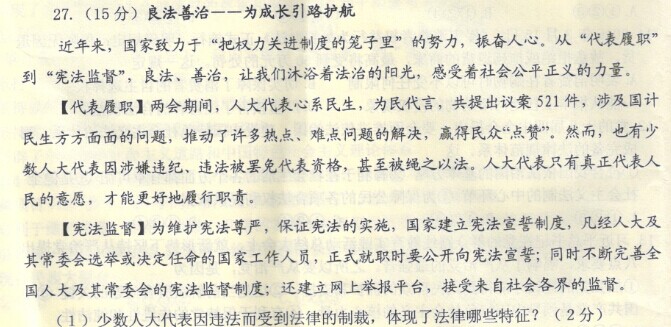 27.（15分）良法善治——为成长引路护航
近年来，国家致力于“把权力关进制度的笼子里”的努力，振奋人心。从“代表履职”
到“宪法监督”，良法、善治，让我们沐浴着法治的阳光，感受着社会公平正义的力量。
【代表履职】两会期间，人大代表心系民生，为民代言，共提出议案521件，涉及国计
民生方方面面的问题，推动了许多热点、难点问题的解决，赢得民众“点赞”。然而，也有少
数人大代表因涉嫌违纪、违法被罢免代表资格，甚至被绳之以法。人大代表只有真正代表人
民的意愿，才能更好地履行职责。
【宪法监督】为维护宪法尊严，保证宪法的实施，国家建立宪法宣誓制度，凡经人大及
其常委会选举或决定任命的国家工作人员，正式就职时要公开向宪法宣誓；同时不断完善全
国人大及其常委会的宪法监督制度；还建立网上举报平台，接受来自社会各界的监督。
（1）少数人大代表因违法而受到法律的制裁，体现了法律哪些特征？（2分）